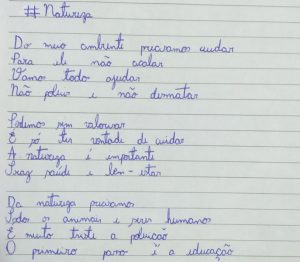 # Natureza
Do meio ambiente precisamos cuidar
Para ele não acabar
Vamos todo ajudar
Não poluir e não desmatar
Podemos sem valorizar
É só ter vontade de cuidar
A natureza é importante
Traz saúde e bem-estar
Da natureza precisamos
Todos os animais e seres humanos
É muito triste a poluição
O primeiro passo é a educação